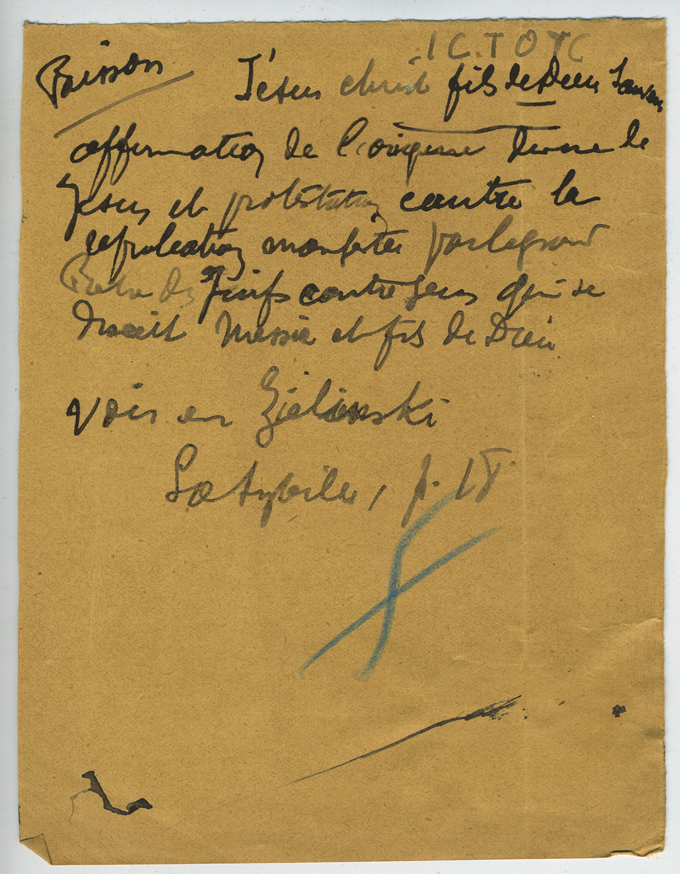 ICTOYC
Poisson Jésus christ fils de Dieu Sauveur
affirmation de l'origine divine de
Jésus et protestation contre la
réprobation manifestée par le grand
Prêtre des Juifs contre Jesus qui se
disait Messie et fils de Dieu
Voir en Zielinski
La Sybille, p. 18